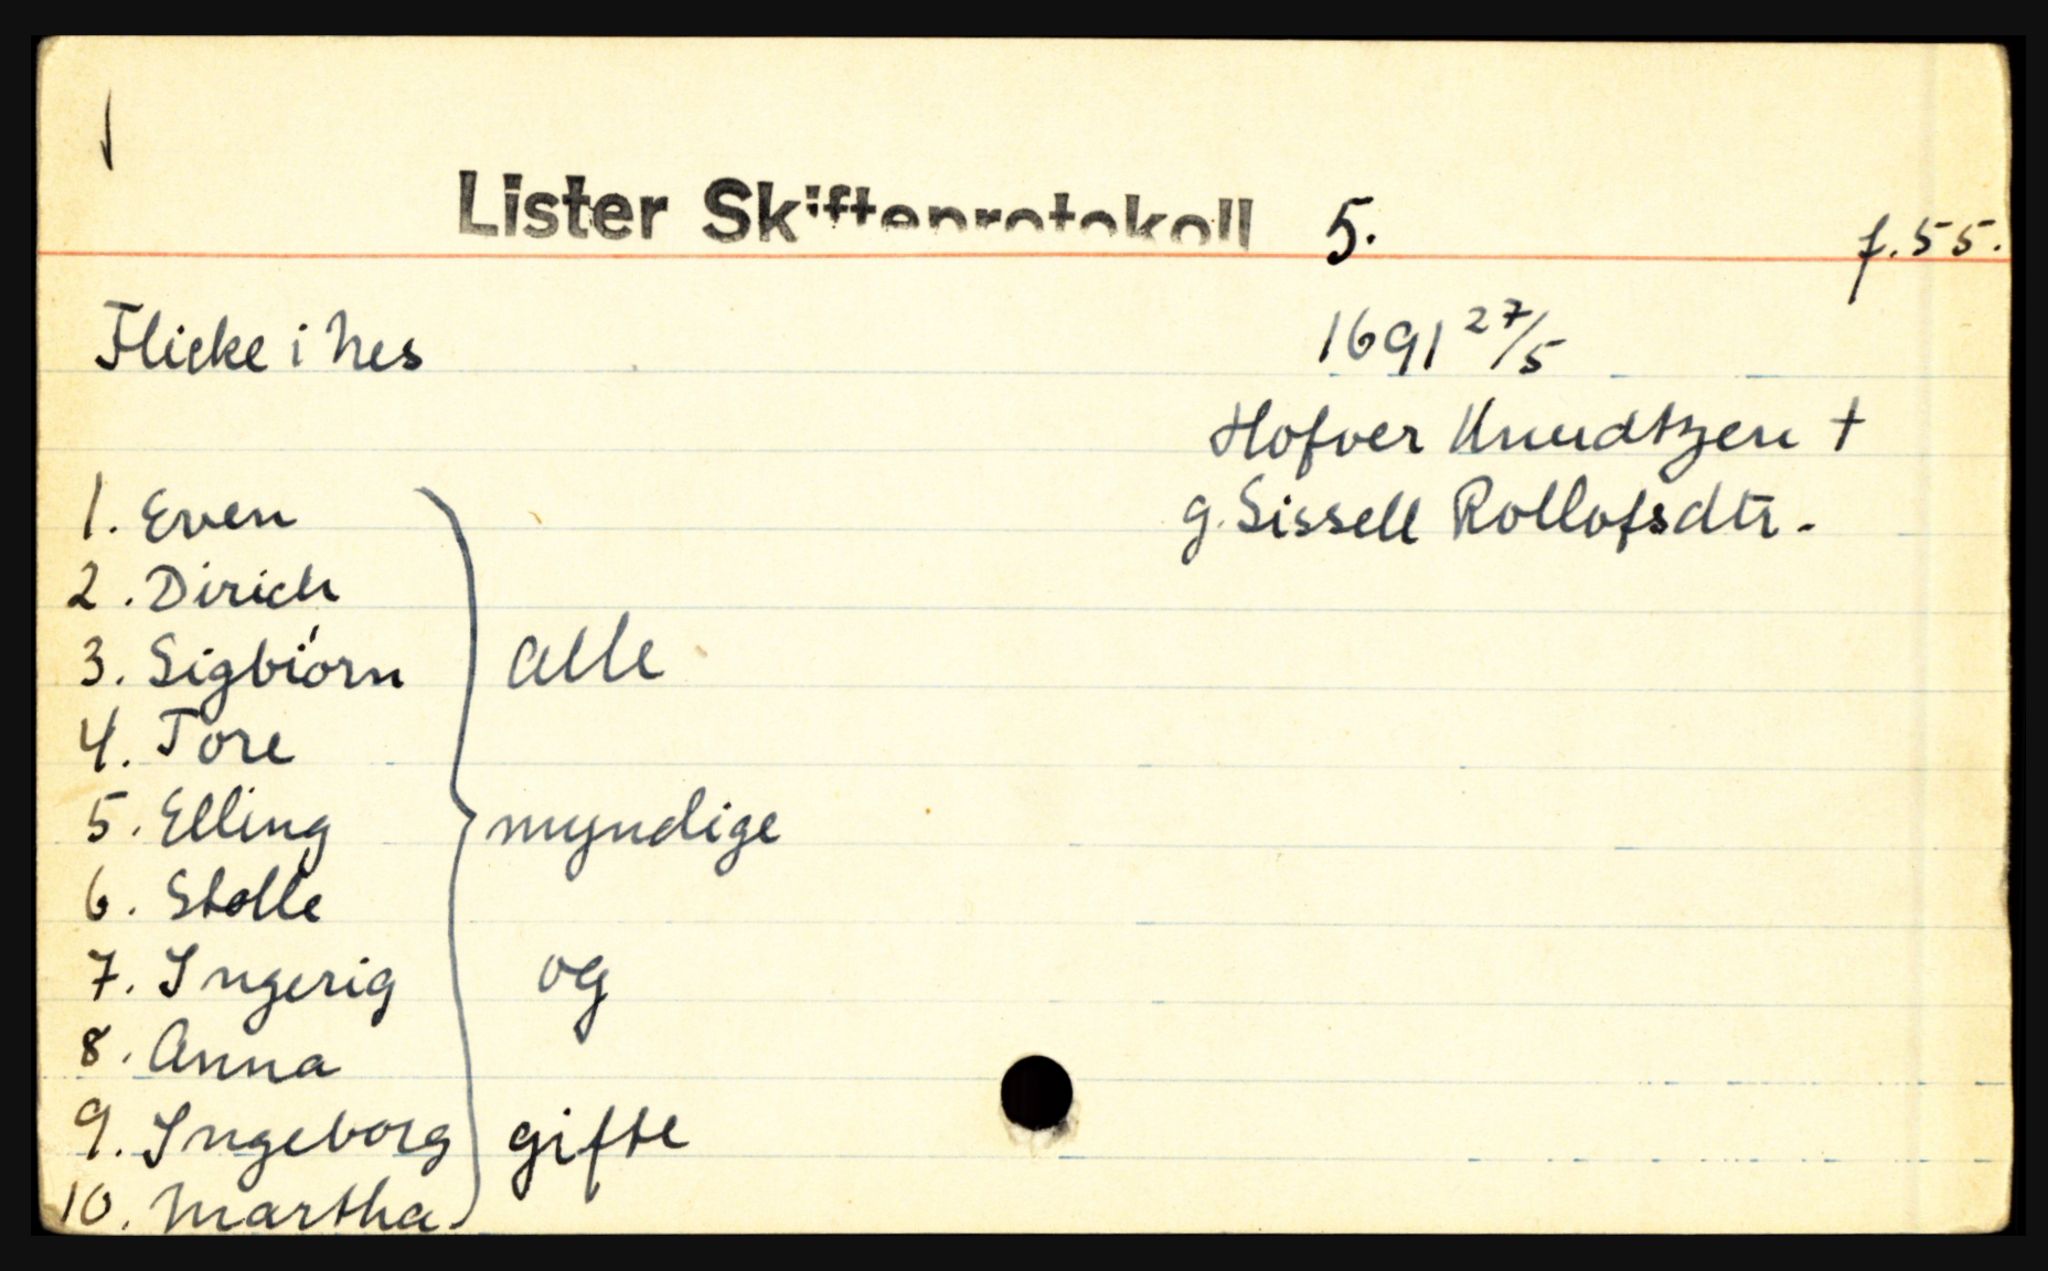 Lister Skifteprotokoll 5. f. 55.
Flicke i Nes 1691 27/5
Hofver Knudtzen †
g. Sissell Rollofsdtr.
1. Even
2. Dirich
3. Sigbiórn alle
4. Tore
5. Elling myndige
6. Stolle
7. Ingerig og
8. Anna
9. Ingeborg gifte
10. Martha